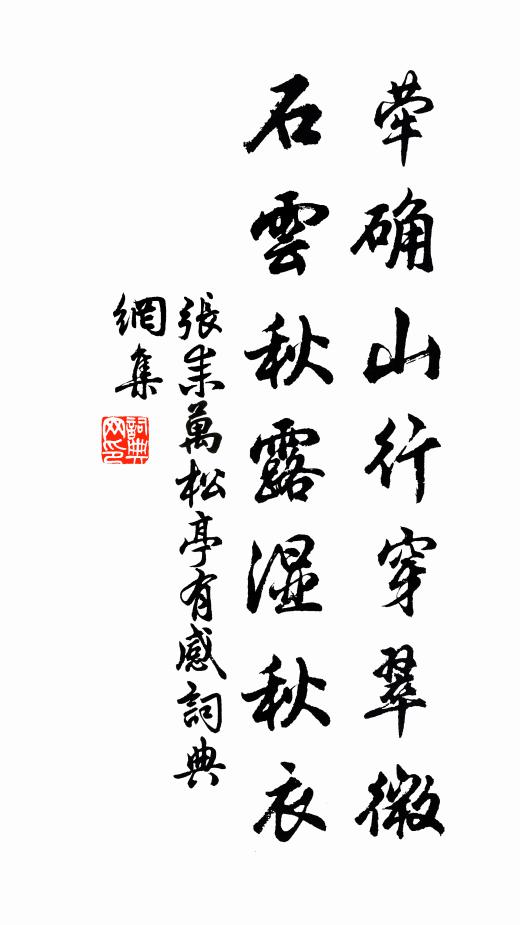 犖确山行穿翠微
石雲秋露湿秋衣
張耒萬松亭有感詞典
網集
詞典網印